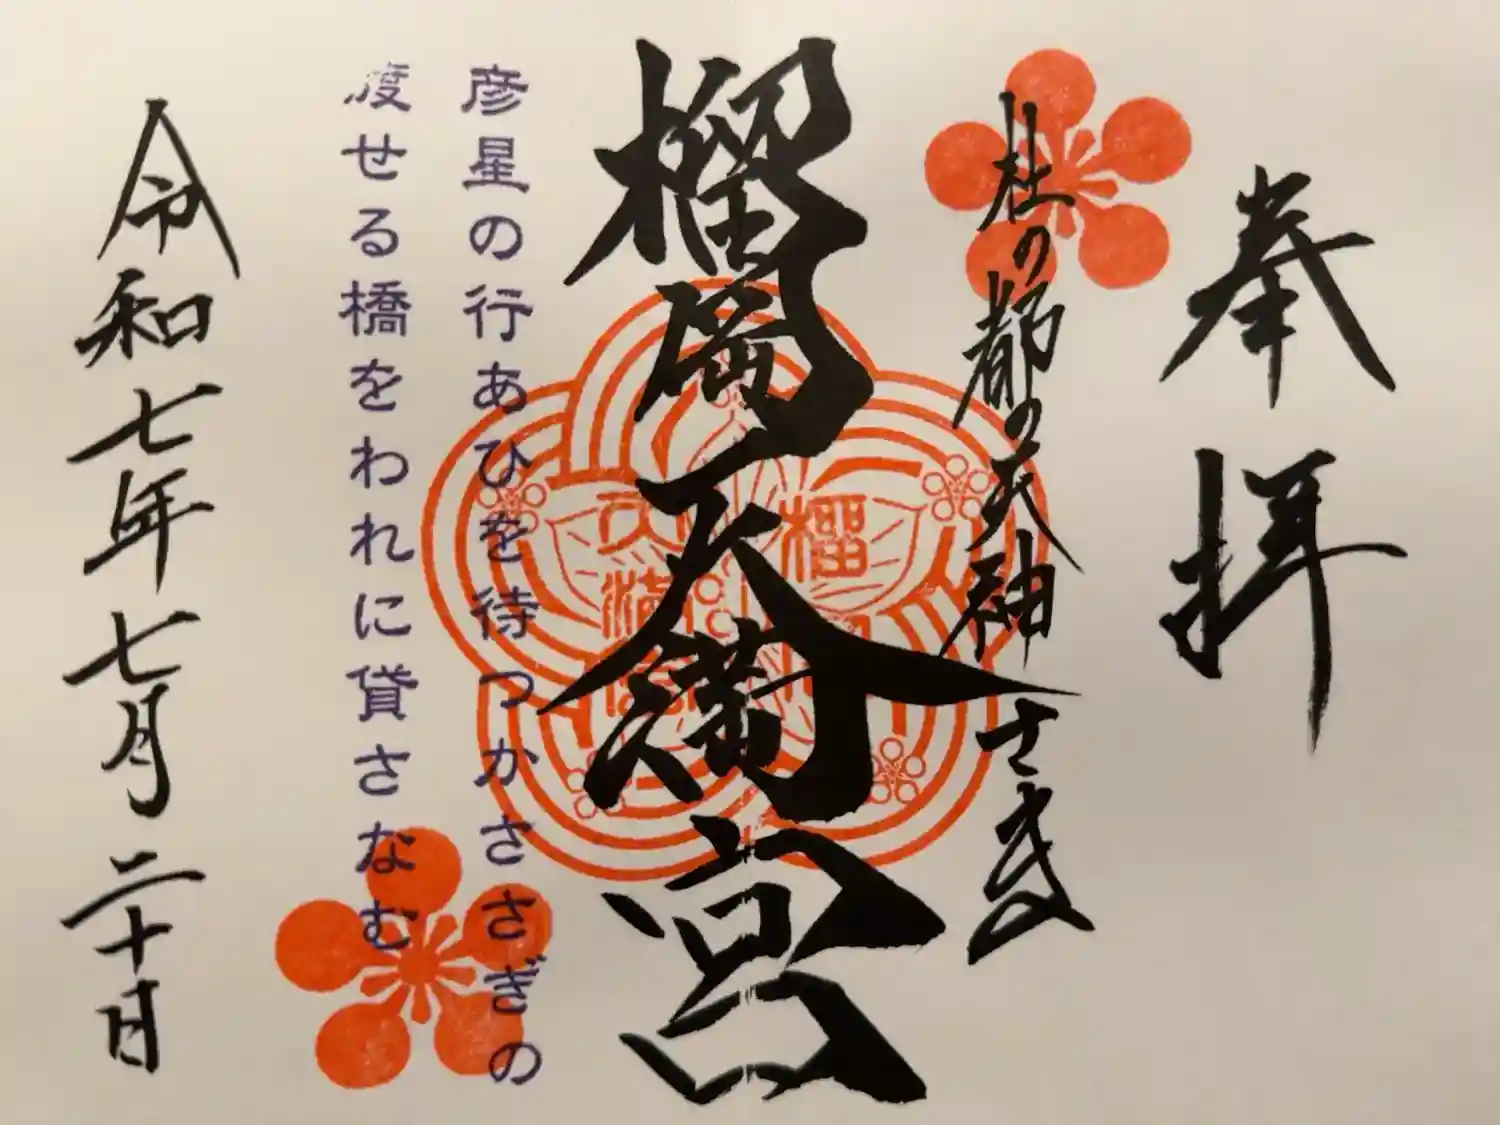 奉拝
杜の都の天神さま
榴岡天満宮
榴岡
天満宮
彦星の行あひを待つかささぎの
渡せる橋をわれに貸さなむ
令和七年七月二十日